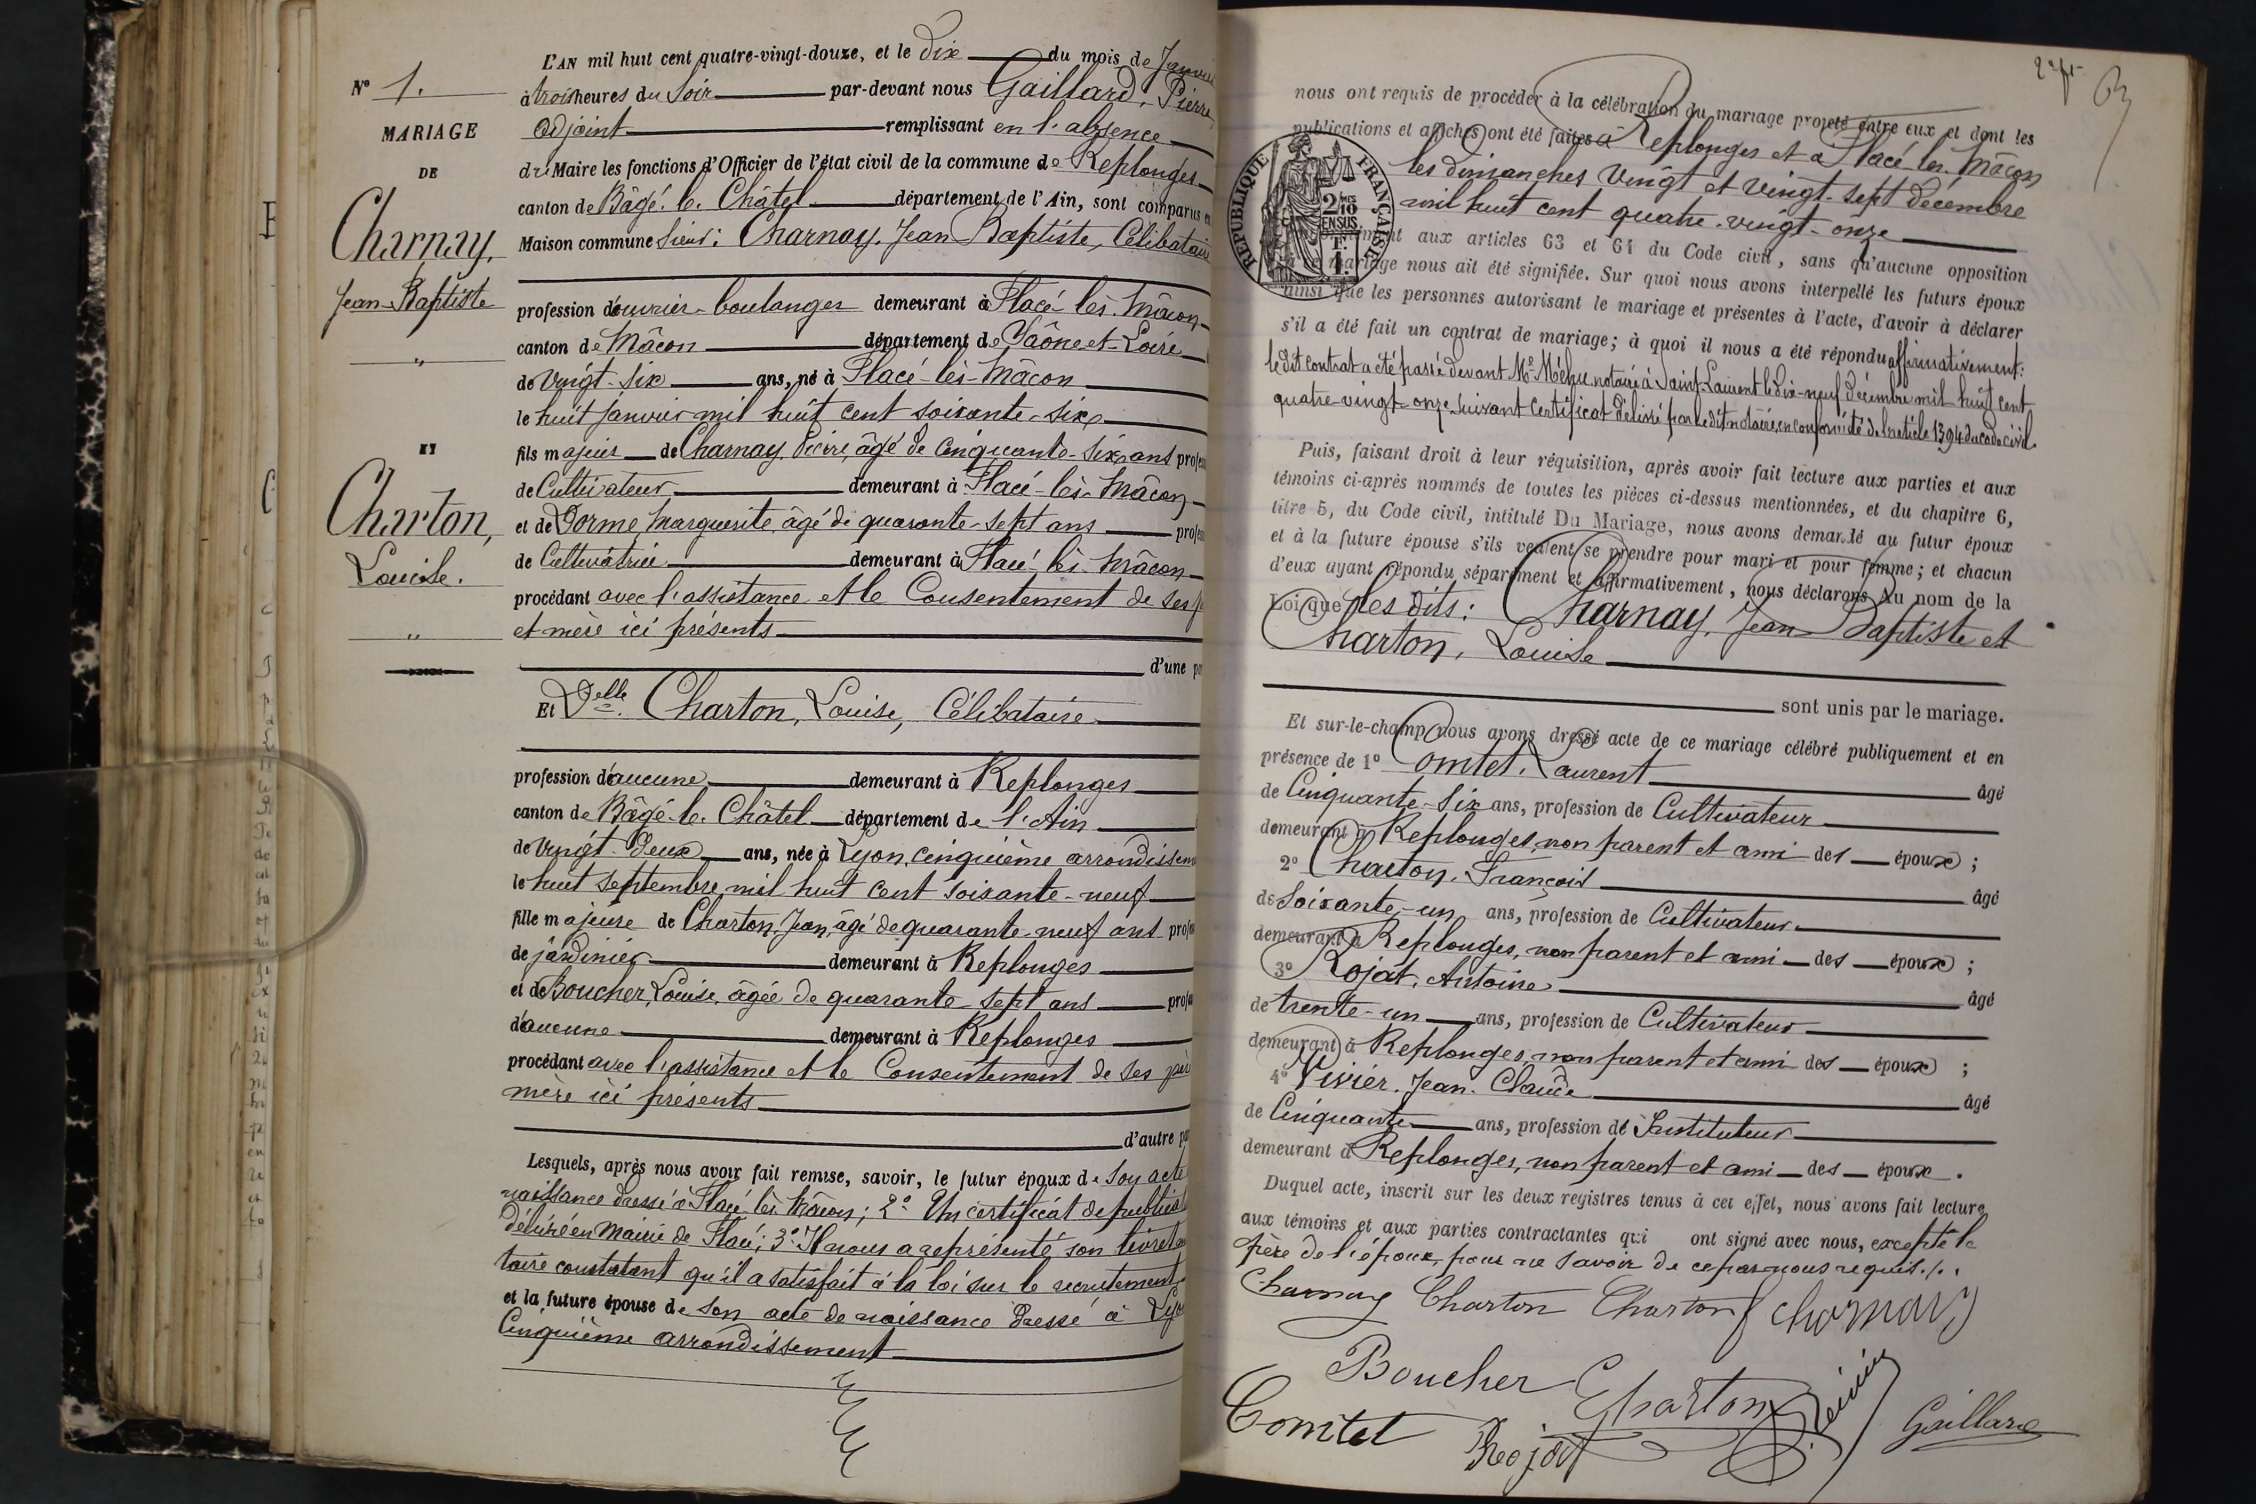 L'AN mil huit cent quatre-vingt-douze, et le dix du mois de Janvier
à trois heures du Soir par-devant nous Gaillard, Pierre,
adjoint remplissant en l'absence
du Maire les fonctions d'Officier de l'état civil de la commune de Replonges
canton de Bâgé-le-Châtel département de l'Ain, sont comparus en
Maison commune Sieur: Charnay, Jean Baptiste, Célibataire
profession d'ouvrier-boulanger demeurant à Flacé-lès-Mâcon
canton de Mâcon département de Saône-et-Loire
de vingt-six ans, né à Flacé-lès-Mâcon
le huit janvier mil huit cent soixante-six
fils majeur de Charnay Pierre, âgé de cinquante-six ans profes
de Cultivateur demeurant à Flacé-lès-Mâcon
et de Dorme, Marguerite, âgé de quarante-sept ans profes
de Cultivatrice demeurant à Flacé-lès-Mâcon
procédant avec l'assistance et le Consentement de ses
et mère ici présents
d'une pa
N° 1.
MARIAGE
DE
Charnay,
Jean-Baptiste
"
ET
Charton,
Louise.
"
Et Delle Charton, Louise, Célibataire
profession d'aucune demeurant à Replonges
canton de Bâgé-le-Châtel département de l'Ain
de vingt-deux ans, née à Lyon, cinquième arrondissem
le huit septembre mil huit cent soixante-neuf
fille majeure de Charton, Jean, âgé de quarante-neuf ans profes
de jardinier demeurant à Replonges
et de Boucher, Louise, âgée de quarante-sept ans profes
d'aucune demeurant à Replonges
procédant avec l'assistance et le Consentement de ses père
mère ici présents
d'autre pa
Lesquels, après nous avoir fait remise, savoir, le futur époux de son acte
naissance dressé à Flacé-lès-Mâcon; 2° Un certificat de publicat
délivré en Mairie de Flacé; 3° Il nous a représenté son livret
taire constatant qu'il a satisfait à la loi sur le recrutement
et la future épouse de son acte de naissance dressé à Lyon
Cinquième arrondissement
63
nous ont requis de procéder à la célébration du mariage projeté entre eux et dont les
publications et affiches ont été faites à Replonges et à Flacé-lès-Mâcon
les Dimanches vingt et vingt-sept décembre
mil huit cent quatre-vingt-onze
aux articles 63 et 64 du Code civil, sans qu'aucune opposition
mariage nous ait été signifiée. Sur quoi nous avons interpellé les futurs époux
ainsi que les personnes autorisant le mariage et présentes à l'acte, d'avoir à déclarer
s'il a été fait un contrat de mariage; à quoi il nous a été répondu affirmativement:
le dit contrat a été passé devant Me Méhu notaire à Saint-Laurent le dix-neuf décembre mil huit cent
quatre-vingt-onze suivant certificat délivré par le dit notaire en conformité de l'article 1394 du code civil.
RÉPUBLIQUE FRANÇAISE
2/10 EN SUS
1 F.
Puis, faisant droit à leur réquisition, après avoir fait lecture aux parties et aux
témoins ci-après nommés de toutes les pièces ci-dessus mentionnées, et du chapitre 6,
titre 5, du Code civil, intitulé Du Mariage, nous avons demandé au futur époux
et à la future épouse s'ils veulent se prendre pour mari et pour femme; et chacun
d'eux ayant répondu séparément et affirmativement, nous déclarons au nom de la
Loi que les dits: Charnay, Jean Baptiste et
Charton, Louise
sont unis par le mariage.
Et sur-le-champ nous avons dressé acte de ce mariage célébré publiquement et en
présence de 1° Comtet, Laurent âgé
de Cinquante-six ans, profession de Cultivateur
demeurant à Replonges, non parent et ami des époux;
2° Charton, François âgé
de soixante-un ans, profession de Cultivateur
demeurant à Replonges, non parent et ami des époux;
3° Rojat, Antoine âgé
de trente-un ans, profession de Cultivateur
demeurant à Replonges, non parent et ami des époux;
4° Vivier, Jean-Claude âgé
de Cinquante ans, profession de Instituteur
demeurant à Replonges, non parent et ami des époux.
Duquel acte, inscrit sur les deux registres tenus à cet effet, nous avons fait lecture
aux témoins et aux parties contractantes qui ont signé avec nous, excepté le
père de l'époux, pour ne savoir de ce par nous requis./.
Charnay Charton Charton Charnay
Boucher Charton Vivier
Comtet Rojat Gaillard